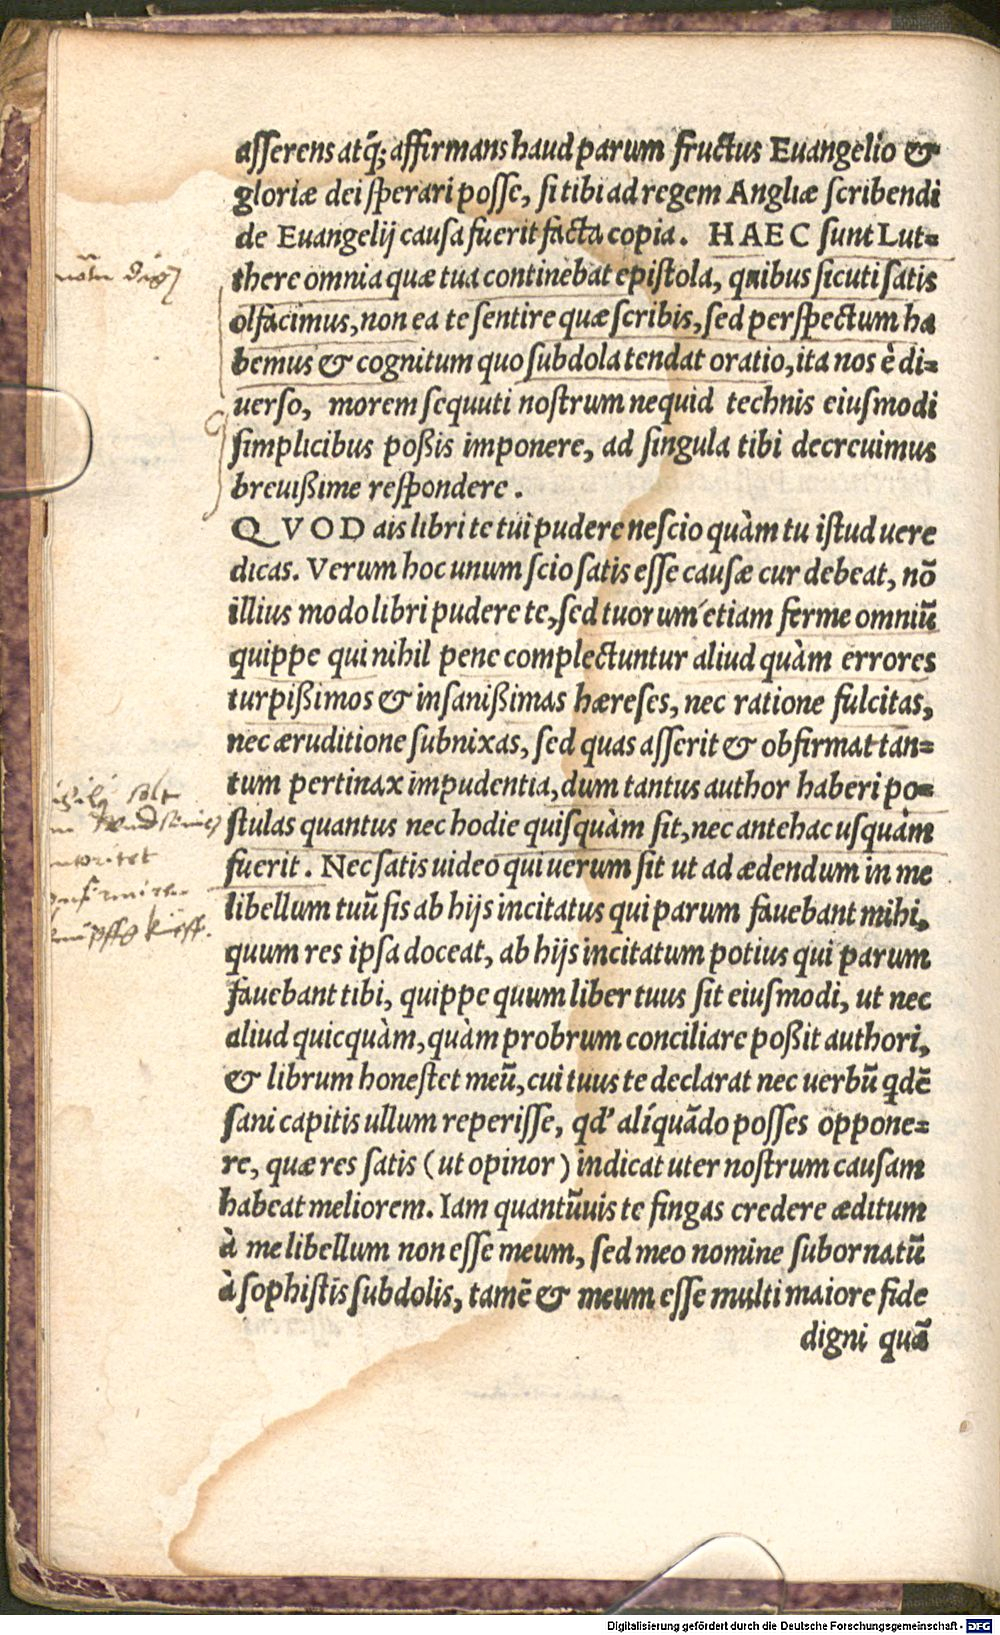 asserens atq́; affirmans haud parum fructus Euangelio &
gloriæ dei sperari posse, si tibi ad regem Angliæ scribendi
de Euangelij causa fuerit facta copia. HAEC sunt Lut=
there omnia quæ tua continebat epistola, quibus sicuti satis
olfacimus, non ea te sentire quæ scribis, sed perspectum ha
bemus & cognitum quo subdola tendat oratio, ita nos è di=
uerso, morem sequuti nostrum nequid technis eiusmodi
simplicibus poßis imponere, ad singula tibi decreuimus
breuißime respondere.
QVOD ais libri te tui pudere nescio quàm tu istud uere
dicas. Verum hoc unum scio satis esse causæ cur debeat, nõ
illius modo libri pudere te, sed tuorum etiam ferme omniũ
quippe qui nihil pene complectuntur aliud quàm errores
turpißimos & insanißimas hæreses, nec ratione fulcitas,
nec æruditione subnixas, sed quas asserit & obfirmat tan=
tum pertinax impudentia, dum tantus author haberi po=
stulas quantus nec hodie quisquàm sit, nec antehac usquàm
fuerit. Nec satis uideo qui uerum sit ut ad ædendum in me
libellum tuũ sis ab hijs incitatus qui parum fauebant mihi,
quum res ipsa doceat, ab hijs incitatum potius qui parum
fauebant tibi, quippe quum liber tuus sit eiusmodi, ut nec
aliud quicquàm, quàm probrum conciliare poßit authori,
& librum honestet meũ, cui tuus te declarat nec uerbũ qdẽ
sani capitis ullum reperisse, qd' aliquãdo posses oppone=
re, quæ res satis (ut opinor) indicat uter nostrum causam
habeat meliorem. Iam quantũuis te fingas credere æditum
à me libellum non esse meum, sed meo nomine subornatũ
à sophistis subdolis, tamẽ & meum esse multi maiore fide
digni quã
Digitalisierung gefördert durch die Deutsche Forschungsgemeinschaft - DFG